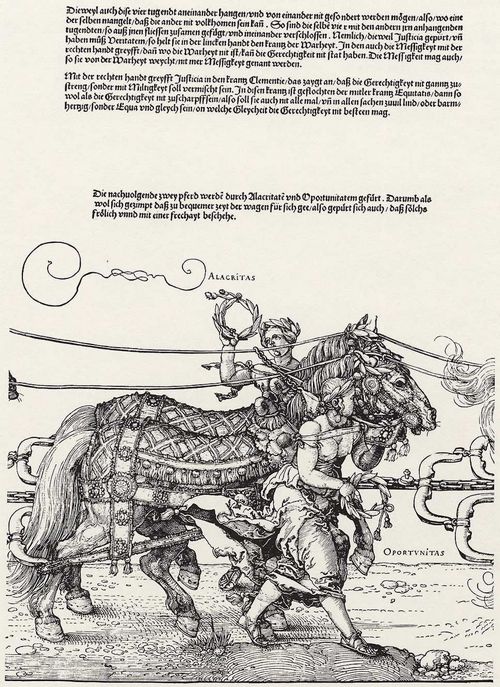 Dieweyl auch dise vier tugendt aneinander hangen/vnd von einander nit gesondert werden mögen/also/wo eine
der selben mangelt/daß die ander nit volkomen sein kan. So sind die selbe vier mit den andern jren anhangenden
tugendten/so auß jnen fliessen zusamen gefügt/vnd ineinander verschlossen. Nemlich/dieweil Justicia gepürt/vñ
haben müß Veritaten/so helt sie in der lincken handt den krantz der Warheyt. In den auch die Messigkeyt mit der
rechten handt greyfft/dañ wo die Warheyt nit ist/kañ die Gerechtigkeyt nit stat haben. Die Messigket mag auch/
so sie von der Warheyt weycht/nit mer Messigkeyt genant werden.
Mit der rechten handt greyfft Justicia in den krantz Clementie/das zaygt an/daß die Gerechtigkeyt nit gantz zu-
streng/sonder mit Miltigkeyt soll vermischt sein. In disen krantz ist geflochten der mitler krantz Equitatis/dann so
wol als die Gerechtigkeyt nit zuscharpff sein/also soll sie auch nit alle mal/vñ in allen sachen zuuil lind/oder barm-
hertzig/sonder Equa vnd gleych sein/on welche Gleycheit die Gerechtigkeyt nit besteen mag.
Die nachuolgende zwey pferd werdē durch Alacritatē vnd Oportunitatem gefürt. Darumb als
wol sich gezimpt daß zu bequemer zeyt der wagen für sich gee/also gepürt sich auch/daß sölchs
frölich vnnd mit einer frechayt beschehe.
ALACRITAS
OPORTVNITAS